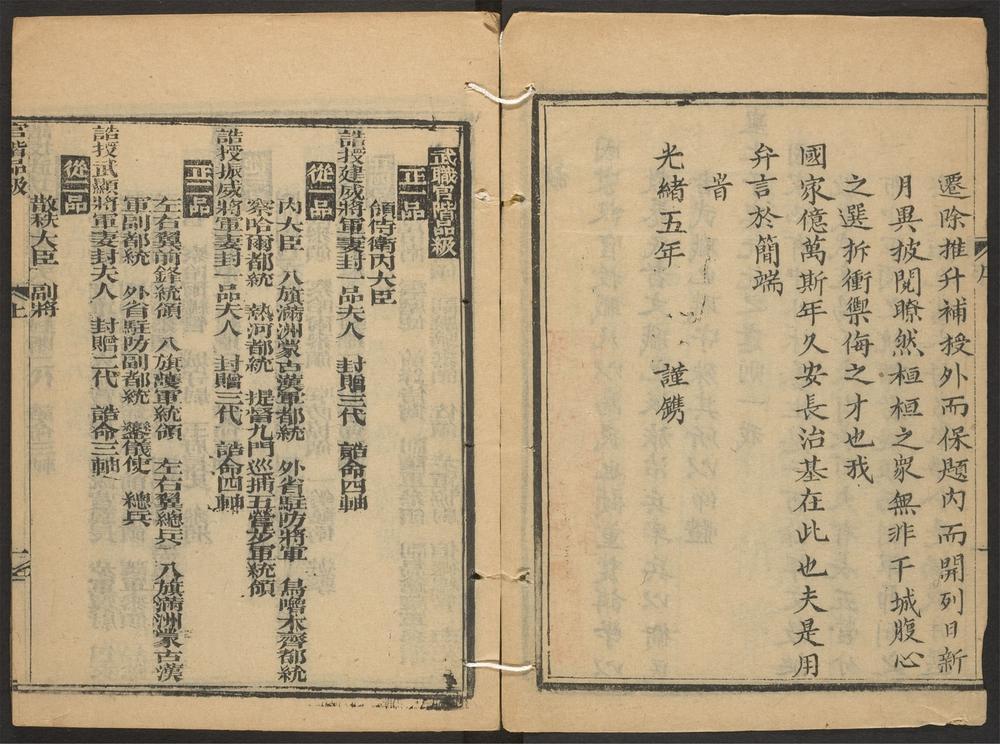 序
遷除推升補授外而保題內而開列日新
月異披閱瞭然桓桓之衆無非干城腹心
之選折衝禦侮之才也我
國家億萬斯年久安長治基在此也夫是用
弁言於簡端
旹
光緒五年 謹鐫
武職官階品級
正一品
領侍衛內大臣
誥授建威將軍妻封一品夫人 封贈三代 誥命四軸
從一品
內大臣 八旗滿洲蒙古漢軍都統 外省駐防將軍 烏嚕木齊都統
察哈爾都統 熱河都統 提督九門巡捕五營步軍統領
誥授振威將軍妻封一品夫人 封贈三代 誥命四軸
正二品
左右翼前鋒統領 八旗護軍統領 左右翼總兵 八旗滿洲蒙古漢
軍副都統 外省駐防副都統 鑾儀使 總兵
誥授武顯將軍妻封夫人 封贈二代 誥命三軸
從二品
散秩大臣 副將
官階品級 上 一